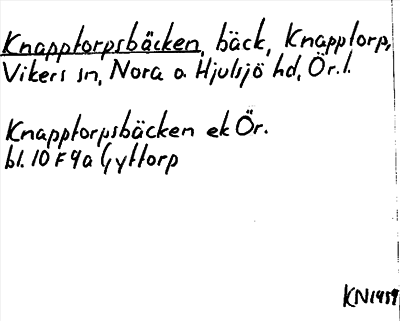 Knapptorpsbäcken, bäck, Knapptorp,
Vikers sn, Nora o. Hjulsjö hd, Ör. l.
Knapptorpsbäcken ek Ör.
bl. 10 F 9a Gyttorp
KN1959